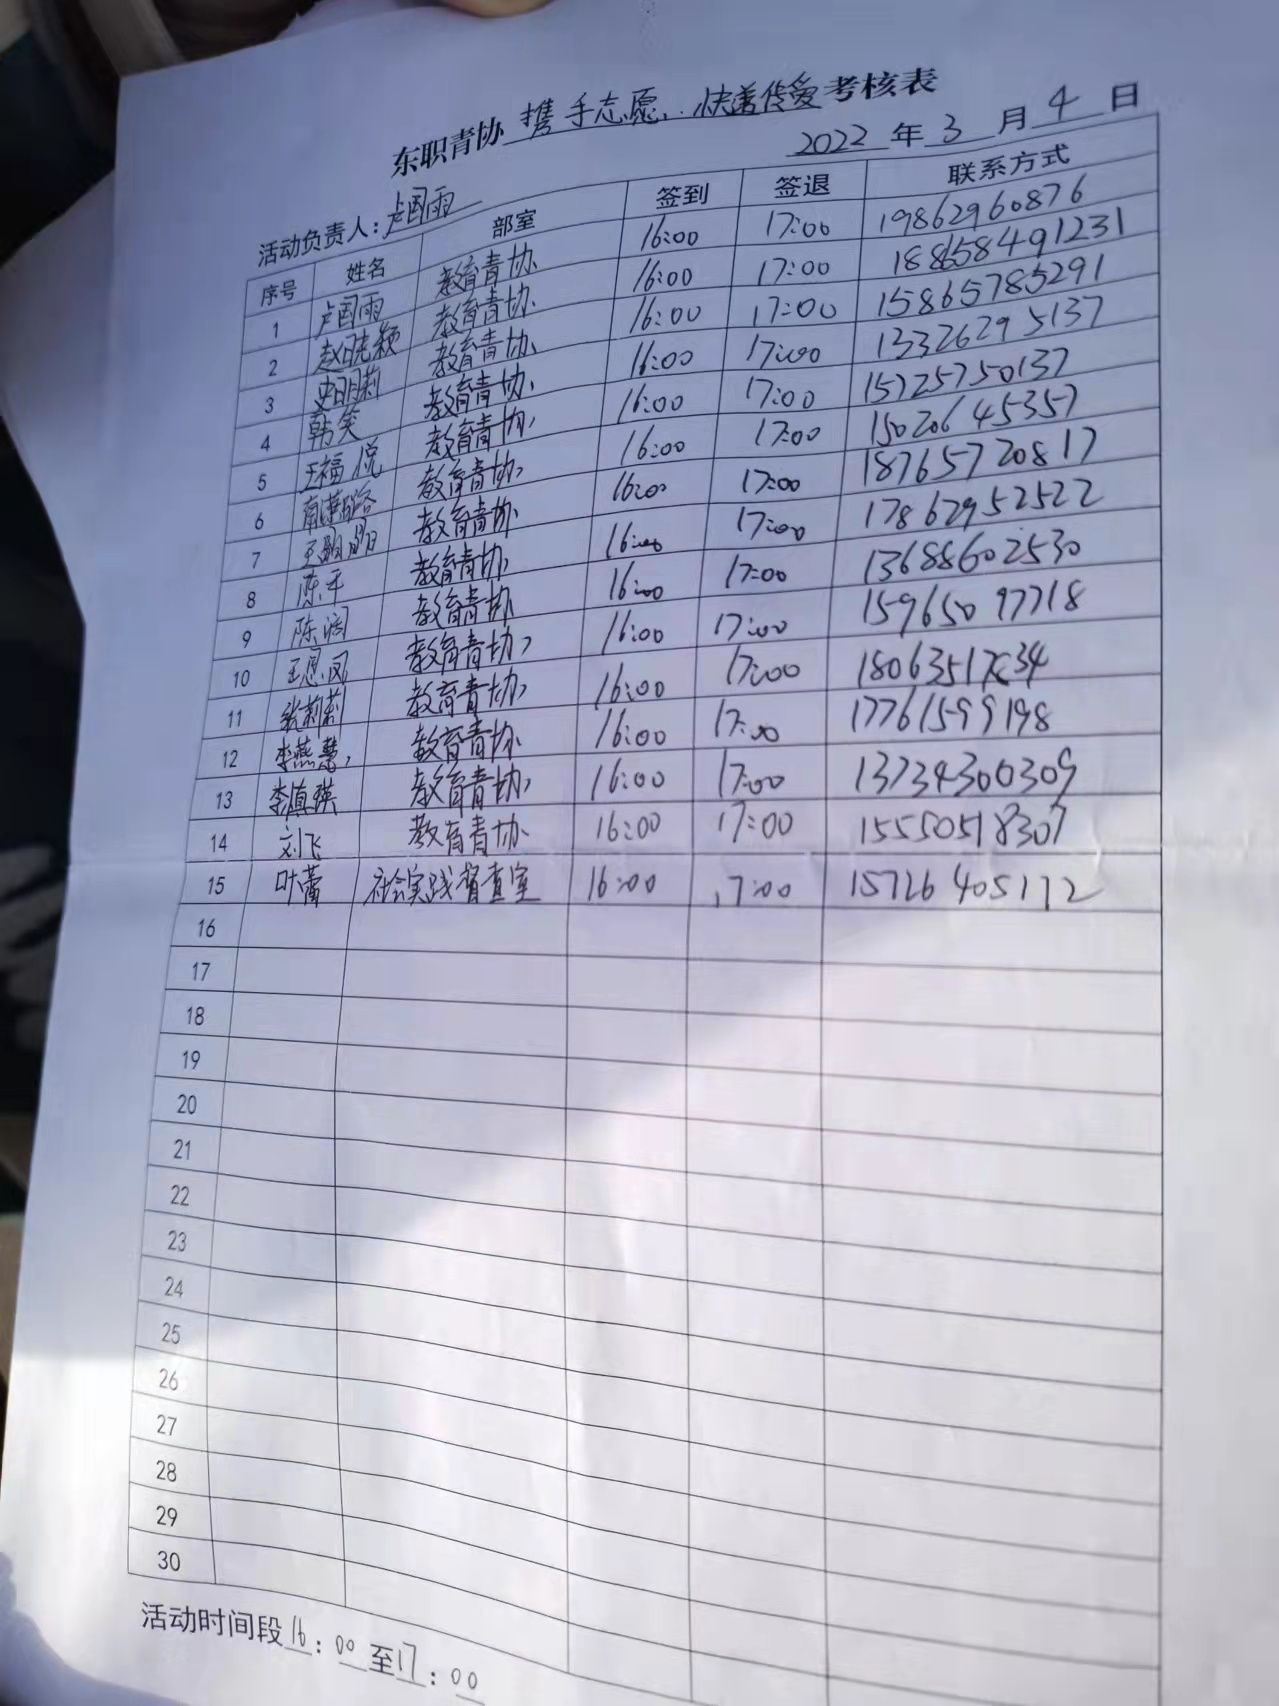 东职青协 携手志愿、快递传爱 考核表
2022 年 3 月 4 日
活动负责人：卢国雨
序号 姓名 部室 签到 签退 联系方式
1 卢国雨 教育青协 16:00 17:00 19862960876
2 赵晓颖 教育青协 16:00 17:00 188658491231
3 史明莉 教育青协 16:00 17:00 15865785291
4 韩笑 教育青协 16:00 17:00 13326295137
5 王福悦 教育青协 16:00 17:00 15725750137
6 教育青协 16:00 17:00 15020645357
7 教育青协 16:00 17:00 18765720817
8 陈平 教育青协 16:00 17:00 17862952522
9 陈阔 教育青协 16:00 17:00 13688602530
10 王恩凤 教育青协 16:00 17:00 15965097718
11 张莉莉 教育青协 16:00 17:00
12 李燕慧 教育青协 16:00 17:00 17761599198
13 李真瑛 教育青协 16:00 17:00 13734300309
14 刘飞 教育青协 16:00 17:00 15550518307
15 叶蕾 社会实践督查室 16:00 17:00 15726405172
16
17
18
19
20
21
22
23
24
25
26
27
28
29
30
活动时间段 16：00 至 17：00